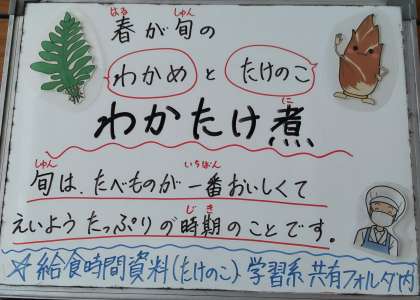 春が旬の
わかめ と たけのこ
わかたけ煮
旬は、たべものが一番おいしくて
えいようたっぷりの時期のことです。
☆給食時間資料(たけのこ) 学習系 共有フォルダ内